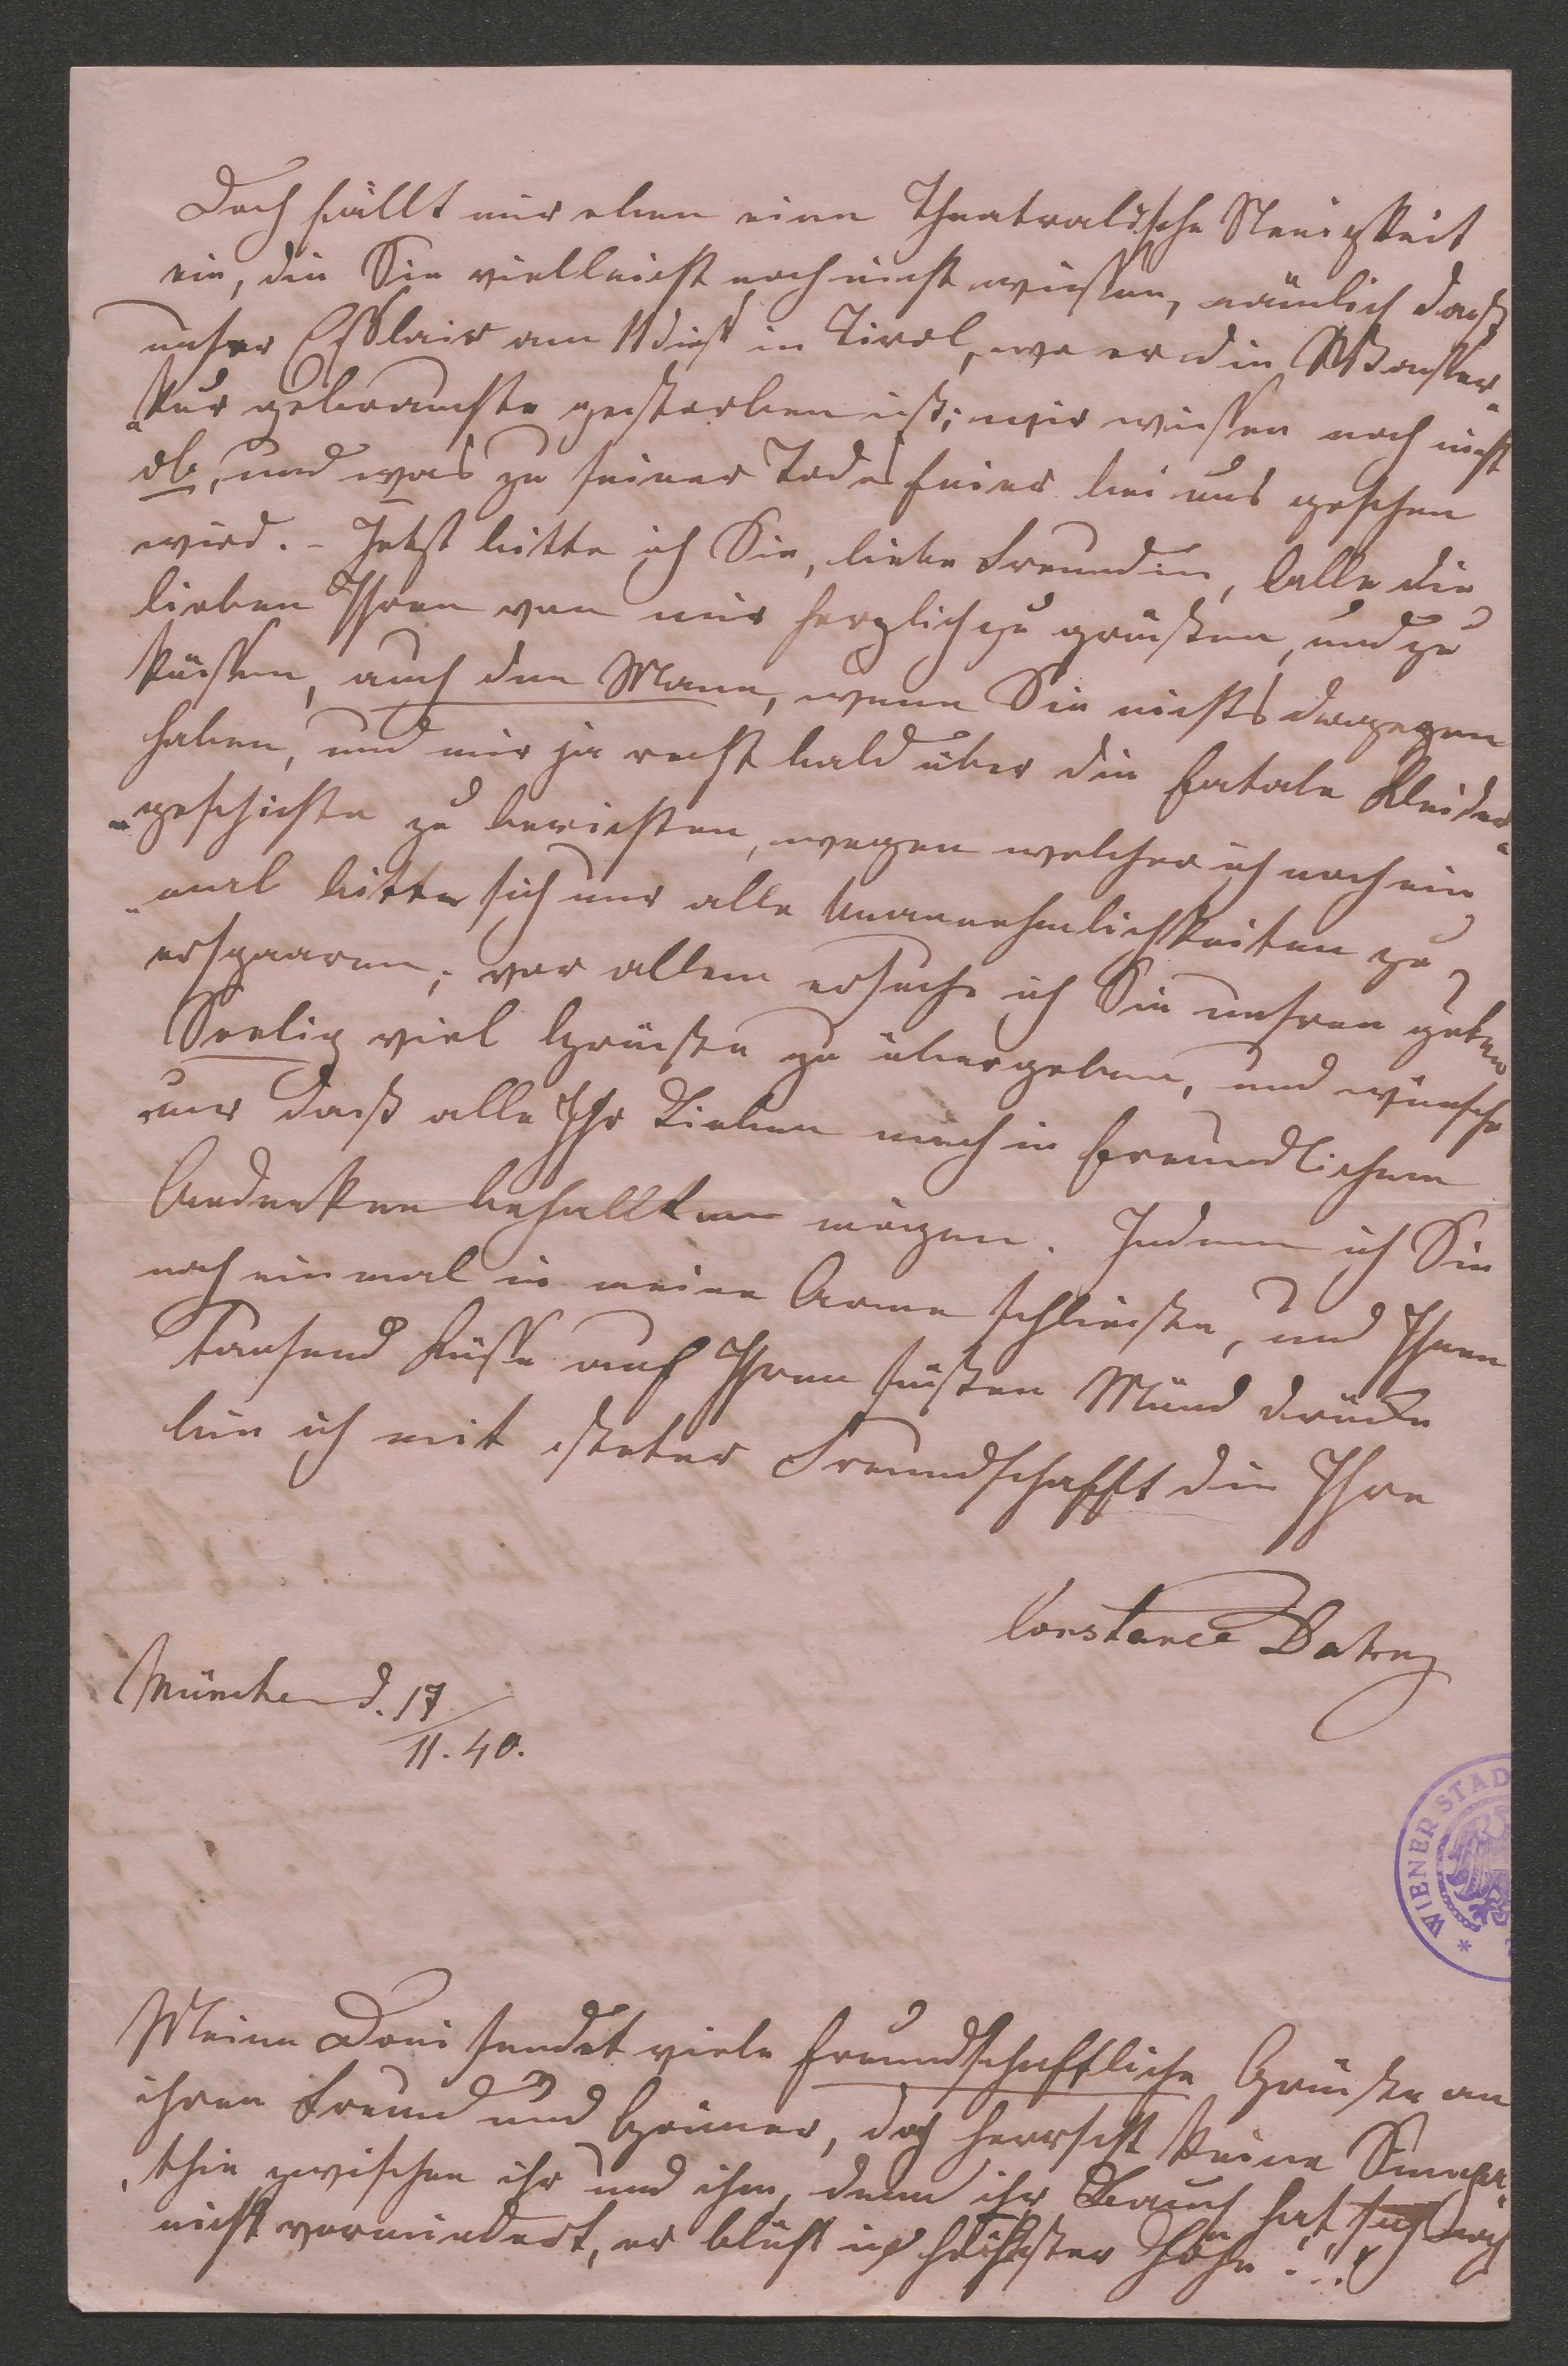 Doch fällt mir eben eine Theatralische Neuigkeit
ein, die Sie vielleicht noch nicht wissen, nämlich daß
unser Esslair am 11 dieß in Tirol, wo er die Wasser-
-kur gebrauchte gestorben ist; wir wissen noch nicht
ob, und was zu seiner Todesfeier bei uns geschen
wird. – Jetzt bitte ich Sie, liebe Freundin, alle die
lieben Ihren von mir herzlich zu grüßen, und zu
küssen, auch den Mann, wenn Sie nichts dagegen
haben, und mir ja recht bald über die fatale Kleider-
-geschichte zu berichten, wegen welcher ich noch ein
-mal bitte sich nur alle Unannehmlichkeiten zu
erspaaren; vor allem ersuche ich Sie unsren guten
Seelig viel Grüße zu übergeben, und wünsche
nur daß alle Ihr Lieben mich in freundlichem
Andenken behallten mögen. Indem ich Sie
noch einmal in meine Arme schließe, und Ihnen
Tausend Küsse auf Ihren süßen Mund drücke
bin ich mit steter Freundschafft die Ihre
Constance Dahn
München d. 17
11. 40.
WIENER STAD
Meine Doni sendet viele freundschaftliche Grüße an
ihren Freund und Gönner, doch herrscht keine Simpa-
-thie zwischen ihr und ihm, denn ihr Bauch hat sich noch
nicht vermindert, er blüht in höchster Höhe!!!